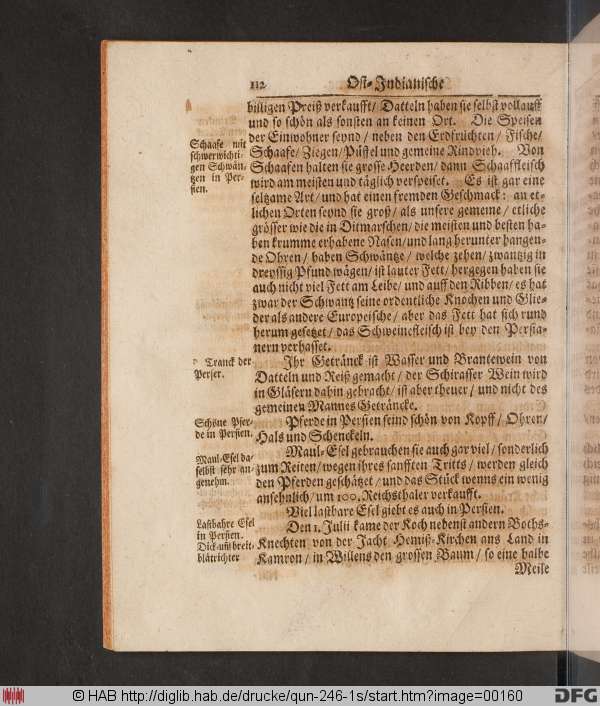 112 Ost-Indianische
billigen Preiß verkaufft/ Datteln haben sie selbst vollauff
und so schön als sonsten an keinen Ort. Die Speisen
der Einwohner seynd / neben den Erdfrüchten / Fische/
Schaafe/ Ziegen/ Püffel und gemeine Rindvieh. Von
Schaafen halten sie grosse Heerden/ dann Schaaffleisch
wird am meisten und täglich verspeiset. Es ist gar eine
seltzame Art/ und hat einen fremden Geschmack: an et-
lichen Orten seynd sie groß / als unsere gemeine / etliche
grösser wie die in Ditmarschen/ die meisten und besten ha-
ben krumme erhabene Nasen/ und lang herunter hangen-
de Ohren / haben Schwäntze / welche zehen/ zwantzig in
dreyssig Pfund wägen/ ist lauter Fett/ hergegen haben sie
auch nicht viel Fett am Leibe/ und auff den Ribben/ es hat
zwar der Schwantz seine ordentliche Knochen und Glie-
der als andere Europeische / aber das Fett hat sich rund
herum gesetzet / das Schweinefleisch ist bey den Persia-
nern verhasset.
Schaafe mit
schwerwichti-
gen Schwän-
tzen in Per-
sien.
Ihr Getränck ist Wasser und Brantewein von
Datteln und Reiß gemacht/ der Schirasser Wein wird
in Gläsern dahin gebracht/ ist aber theuer / und nicht des
gemeinen Mannes Geträncke.
Tranck der
Perser.
Pferde in Persien seind schön von Kopff / Ohren/
Hals und Schenckeln.
Schöne Pfer-
de in Persien.
Maul-Esel gebrauchen sie auch gar viel/ sonderlich
zum Reiten/ wegen ihres sanfften Tritts / werden gleich
den Pferden geschätzet / und das Stück wenns ein wenig
ansehnlich/ um 100. Reichsthaler verkaufft.
Maul-Esel da-
selbst sehr an-
genehm.
Viel lastbare Esel giebt es auch in Persien.
Den 1. Julii kame der Koch nebenst andern Boths-
Knechten von der Jacht Hemiß-Kirchen ans Land in
Kamron / in Willens den grossen Baum / so eine halbe
Lastbahre Esel
in Persien.
Dick- um̃ breit-
blätrichter
Meile
© HAB http://diglib.hab.de/drucke/qun-246-1s/start.htm?image=00160
DFG